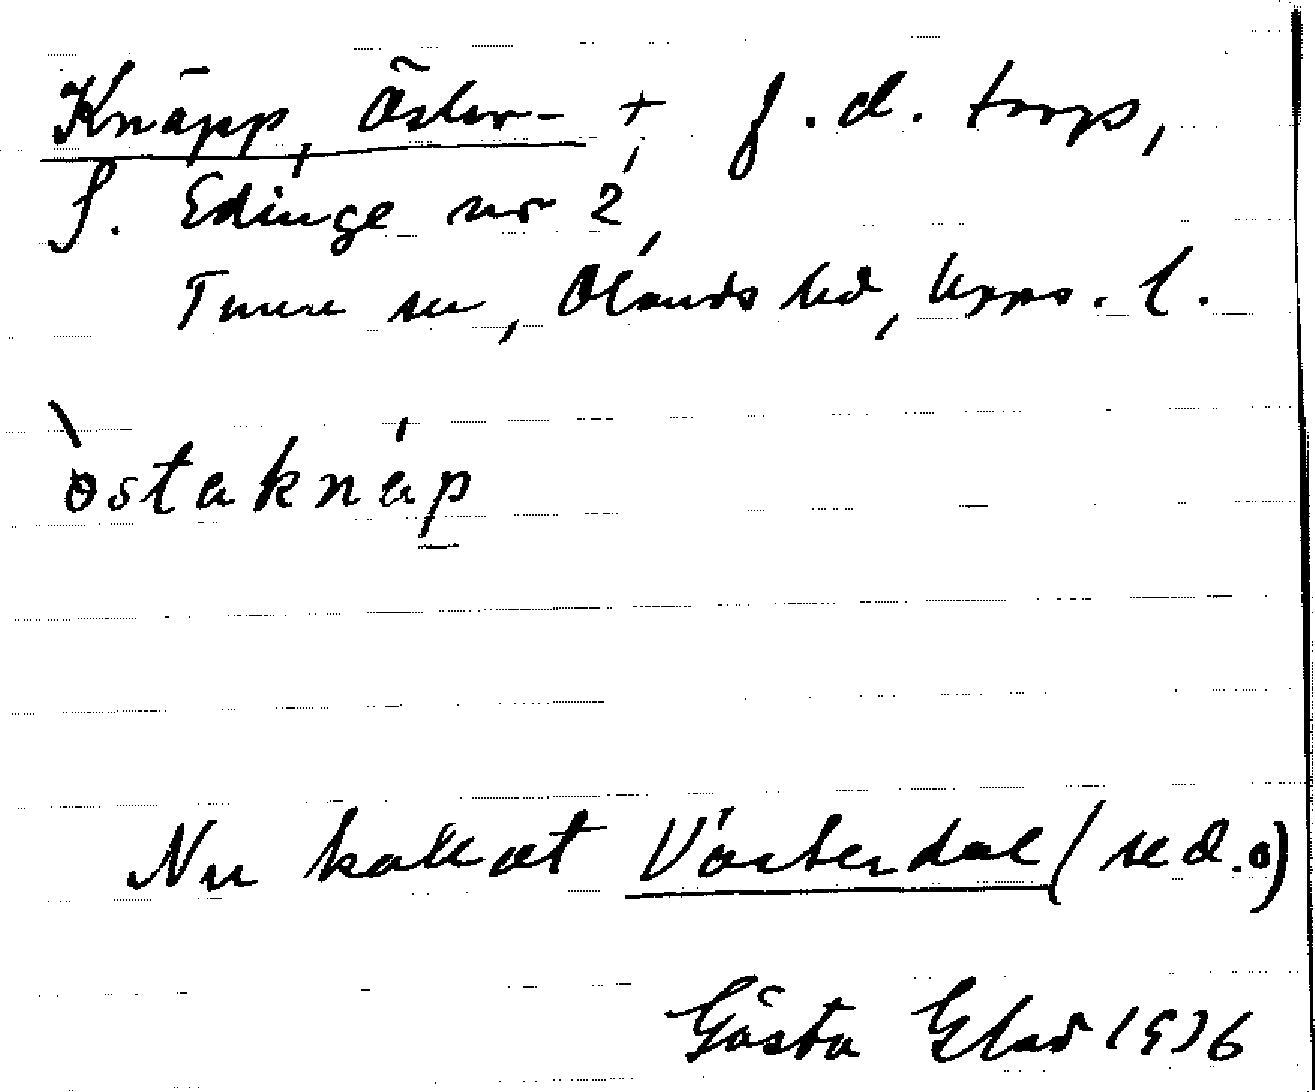 Knäpp, Öster- + f.d. torp,
f. Edinge nr 2,
Tuna sn, Olands hd, Upps. l.
östaknáp
Nu kallat Västerdal (se d.o)
Gösta 1936